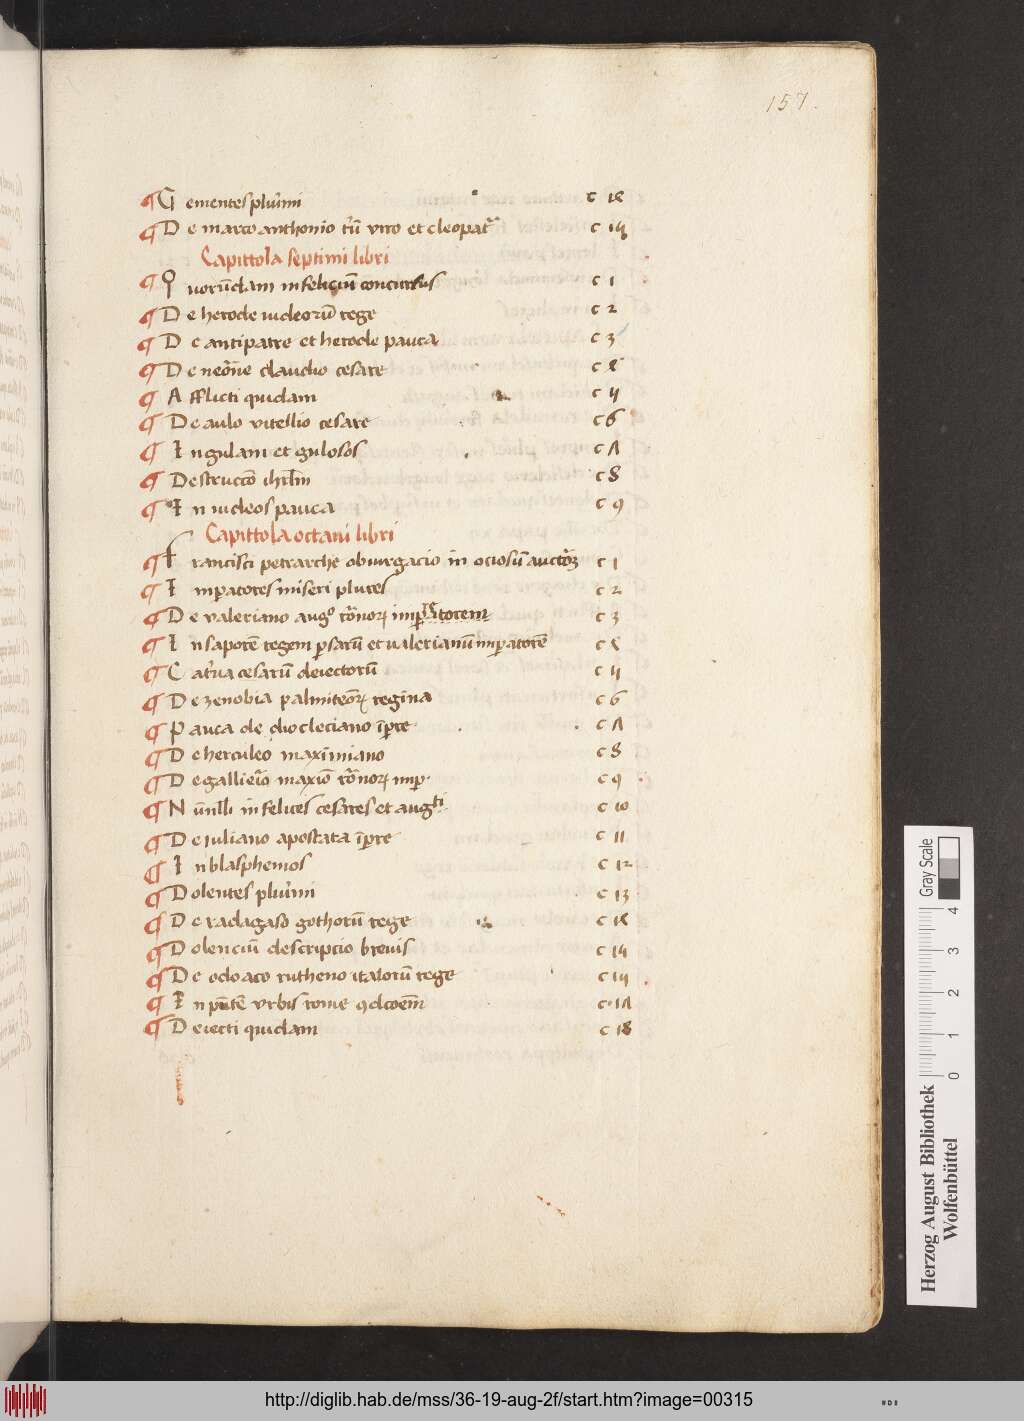 157.
¶ Gementes plurimi c 14
¶ De marco anthonio t'um viro et cleopatr̄ c 15
Capittola septimi libri
¶ Quorūdam infeliciū concursus c 1
¶ De herode iudeorū rege c 2
¶ De antipatre et herode pauca c 3
¶ De neōne claudio cesare c 4
¶ Afflicti quidam c 5
¶ De aulo vitellio cesare c 6
¶ In gulam et gulosos c 7
¶ Destruccō ihrlm̄ c 8
¶ In iudeos pauca c 9
Capittola octaui libri
¶ Francisci petrarche obiurgacio in ociosū c 1
¶ Imp̲atores miseri plures c 2
¶ De valeriano augo rōnoꝝ c 3
¶ In saporē regem p̲sarū et valerianū imp̲atorē c 4
¶ Cat'ua cesarū deiectorū c 5
¶ De zenobia palmiteōꝝ regina c 6
¶ Pauca de diocleciano īp̲re c 7
¶ De herculeo maximiano c 8
¶ De gallieīo maxīo rōnoꝝ imp̲. c 9
¶ Nūnlli infelices cesares et augti c 10
¶ De iuliano apostata īp̲re c 11
¶ In blasphemos c 12
¶ Dolentes plurimi c 13
¶ De radagaso gothorū rege c 14
¶ Dolenciū descripcio breuis c 15
¶ De odoaco rutheno italorū rege c 16
¶ In pn̄tē vrbis rome ꝯdcōem̄ c 17
¶ Deiecti quidam c 18
Gray Scale
0 1 2 3 4
Herzog August Bibliothek
Wolfenbüttel
http://diglib.hab.de/mss/36-19-aug-2f/start.htm?image=00315